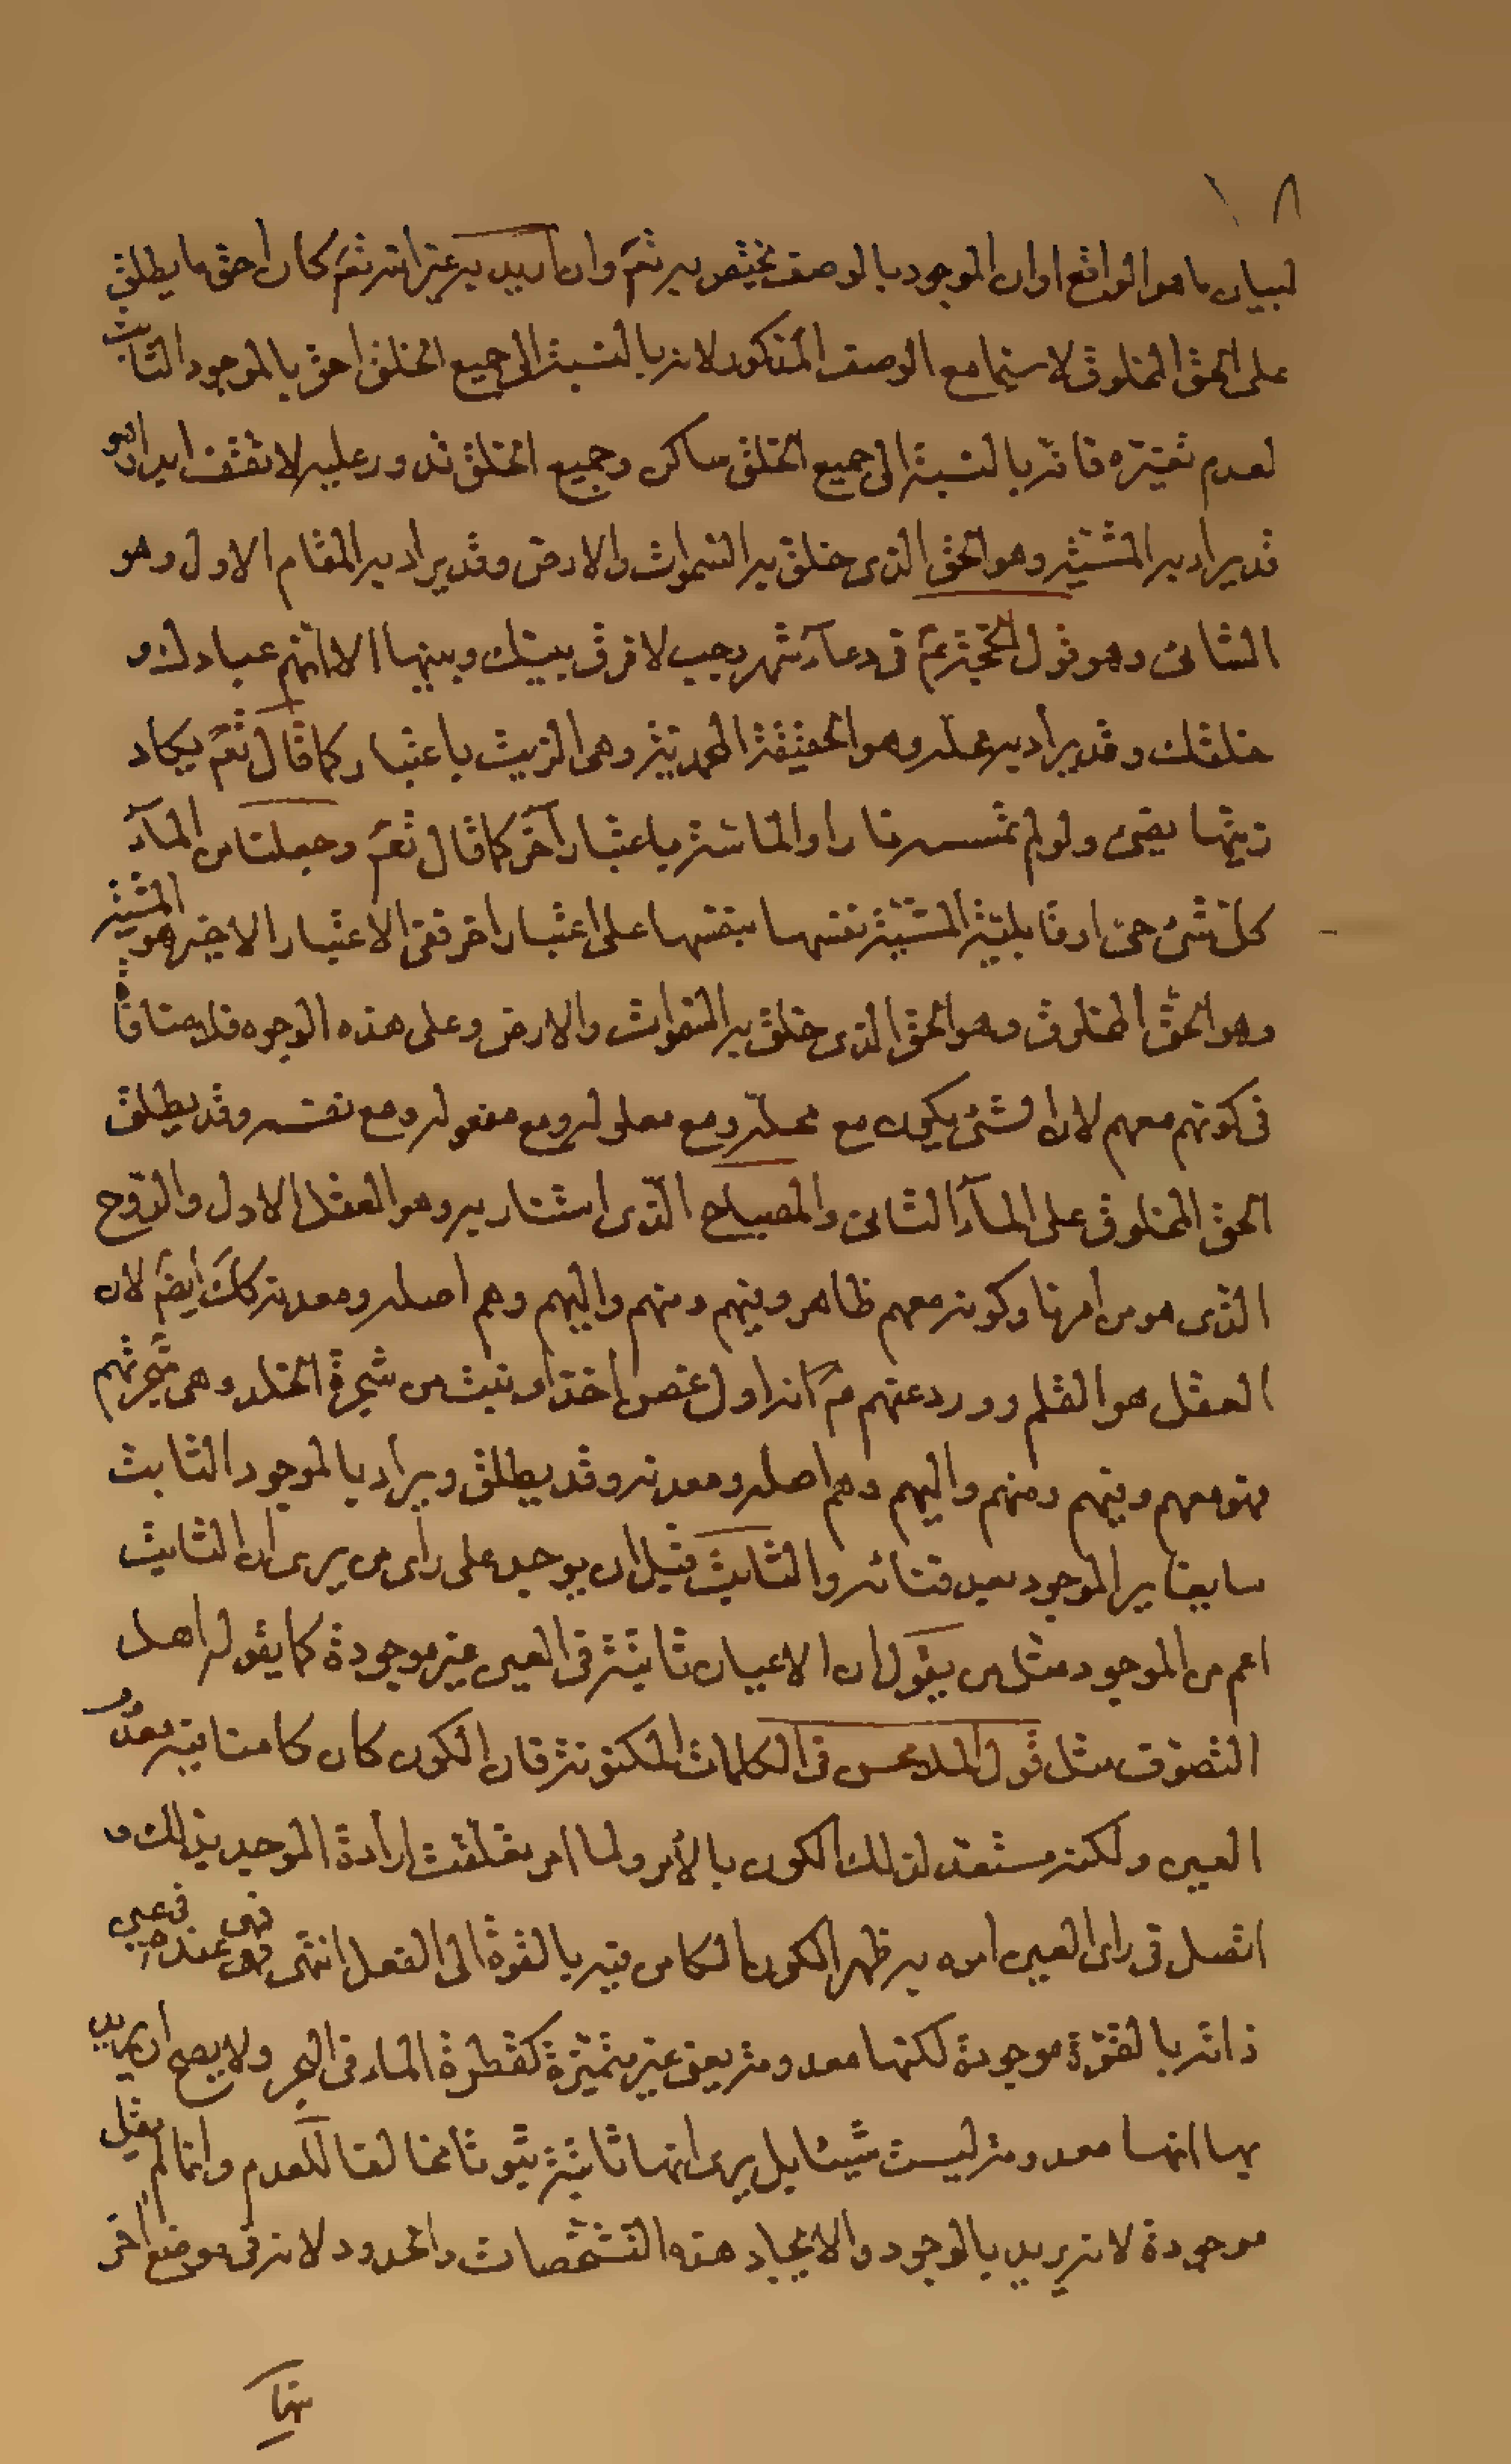 ١٨
لبيان ما هو الواقع او ان الموجود بالوصف يختص به تعم وان اريد به غير الله تعم كان احق ما يطلق
على الحق المخلوق لا سيما مع الوصف المذكور لانه بالنسبة الى جميع الخلق احق بالموجود الثابت
لعدم تغيره فانه بالنسبة الى جميع الخلق ساكن وجميع الخلق تدور عليه لا تقف ابدا وهو
قد يراد به المشية وهو الحق الذى خلق به السموات والارض وقد يراد به المقام الاول وهو
الثانى وهو قول الحجة عم فى دعآء شهر رجب لا فرق بينك وبينها الا انهم عبادك و
خلقك وقد يراد به محله وهو الحقيقة المحمدية وهى الزيت باعتبار كما قال تعم يكاد
زيتها يضىء ولو لم تمسسه نار او الماء باعتبار آخر كما قال تعم وجعلنا من المآء
كل شىء حى او قابلية المشية نفسها بنفسها على اعتبار اخر ففى الاعتبار الاخير هو المشية
وهو الحق المخلوق وهو الحق الذى خلق به السموات والارض وعلى هذه الوجوه فلا منافا
فى كونهم معهم لان الشىء يكون مع محله ومع معلوله ومع مفعوله ومع نفسه وقد يطلق
الحق المخلوق على المآء الثانى والمصباح الذى استنار به وهو العقل الاول والروح
الذى هو من امرنا وكونه معهم ظاهر وفيهم ومنهم واليهم وهم اصله ومعدنه كك ايضم لان
العقل هو القلم وورد عنهم م انه اول غصن اخذ او نبت من شجرة الخلد وهى شجرتهم
فهو معهم وفيهم ومنهم واليهم وهم اصله ومعدنه وقد يطلق ويراد بالموجود الثابت
سابقا ير الموجود بعد فنائه والثابت قبل ان يوجد على راى من يرى ان الثابت
اعم من الموجود مثل من يقول ان الاعيان ثابتة فى العين غير موجودة كما يقوله اهل
التصوف مثل قول الملا محسن فى الكلمات المكنونة فان الكون كان كامنا فيه معدوم
العين ولكنه مستعد لذلك الكون بالأمر ولما امر تعلقت ارادة الموجد بذلك و
اتصل فى راى العين امره به ظهر الكون الكامن فيه بالقوة الى الفعل انتهى فهى عنده فى عين
ذاته بالقوة موجودة لكنها معدومة يعنى غير متميزة كقطرة الماء فى البحر ولا يصح ان يريد
بها انها معدومة ليست شيئا بل يرى انها ثابتة ثبوتا مخالفا للعدم وانما لم يقل
موجودة لانه يريد بالوجود والايجاد هذه التشخصات والحدود لانه فى موضع اخر